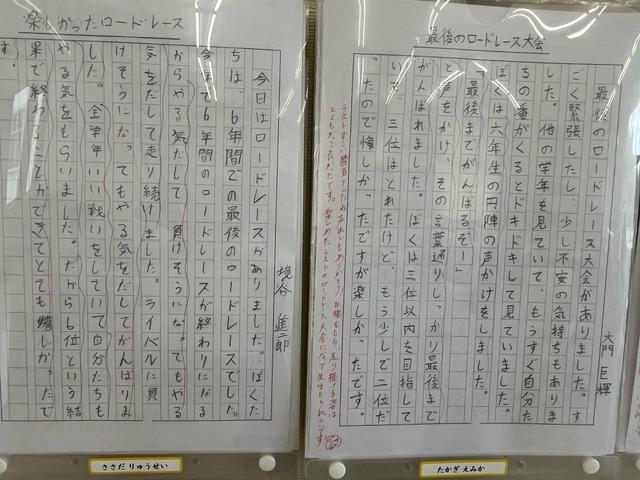 最後のロードレース大会
大門 巨輝
最後のロードレース大会がありました。す
ごく緊張したし、少し不安の気持ちもありま
した。他の学年を見ていて、もうすぐ自分た
ちの番がくるとドキドキして見ていました。
ぼくは六年生の円陣の声かけをしました。
「最後までがんばるぞー」
と声をかけ、その言葉通りしっかり最後まで
がんばれました。ぼくは三位以内を目指して
いた。三位はとれたけど、もう少しで二位だ
ったので悔しかったですが楽しかったです。
楽しかったロードレース
進二郎
今日はロードレースがありました。ぼくた
ちは、6年間での最後のロードレースでした。
今まで6年間のロードレースが終わりになる
からやる気だして負けそうにな。てもやる
気をだして走り続けました。ライバルに負
けそうになってもやる気をだしてがんばりま
した。全学年いい戦いをしていて自分たちも
やる気をもらいました。だから6位という結
果で終わることができてとても嬉しかったで
す。
ささだ りゅうせい
たかぎ えみか